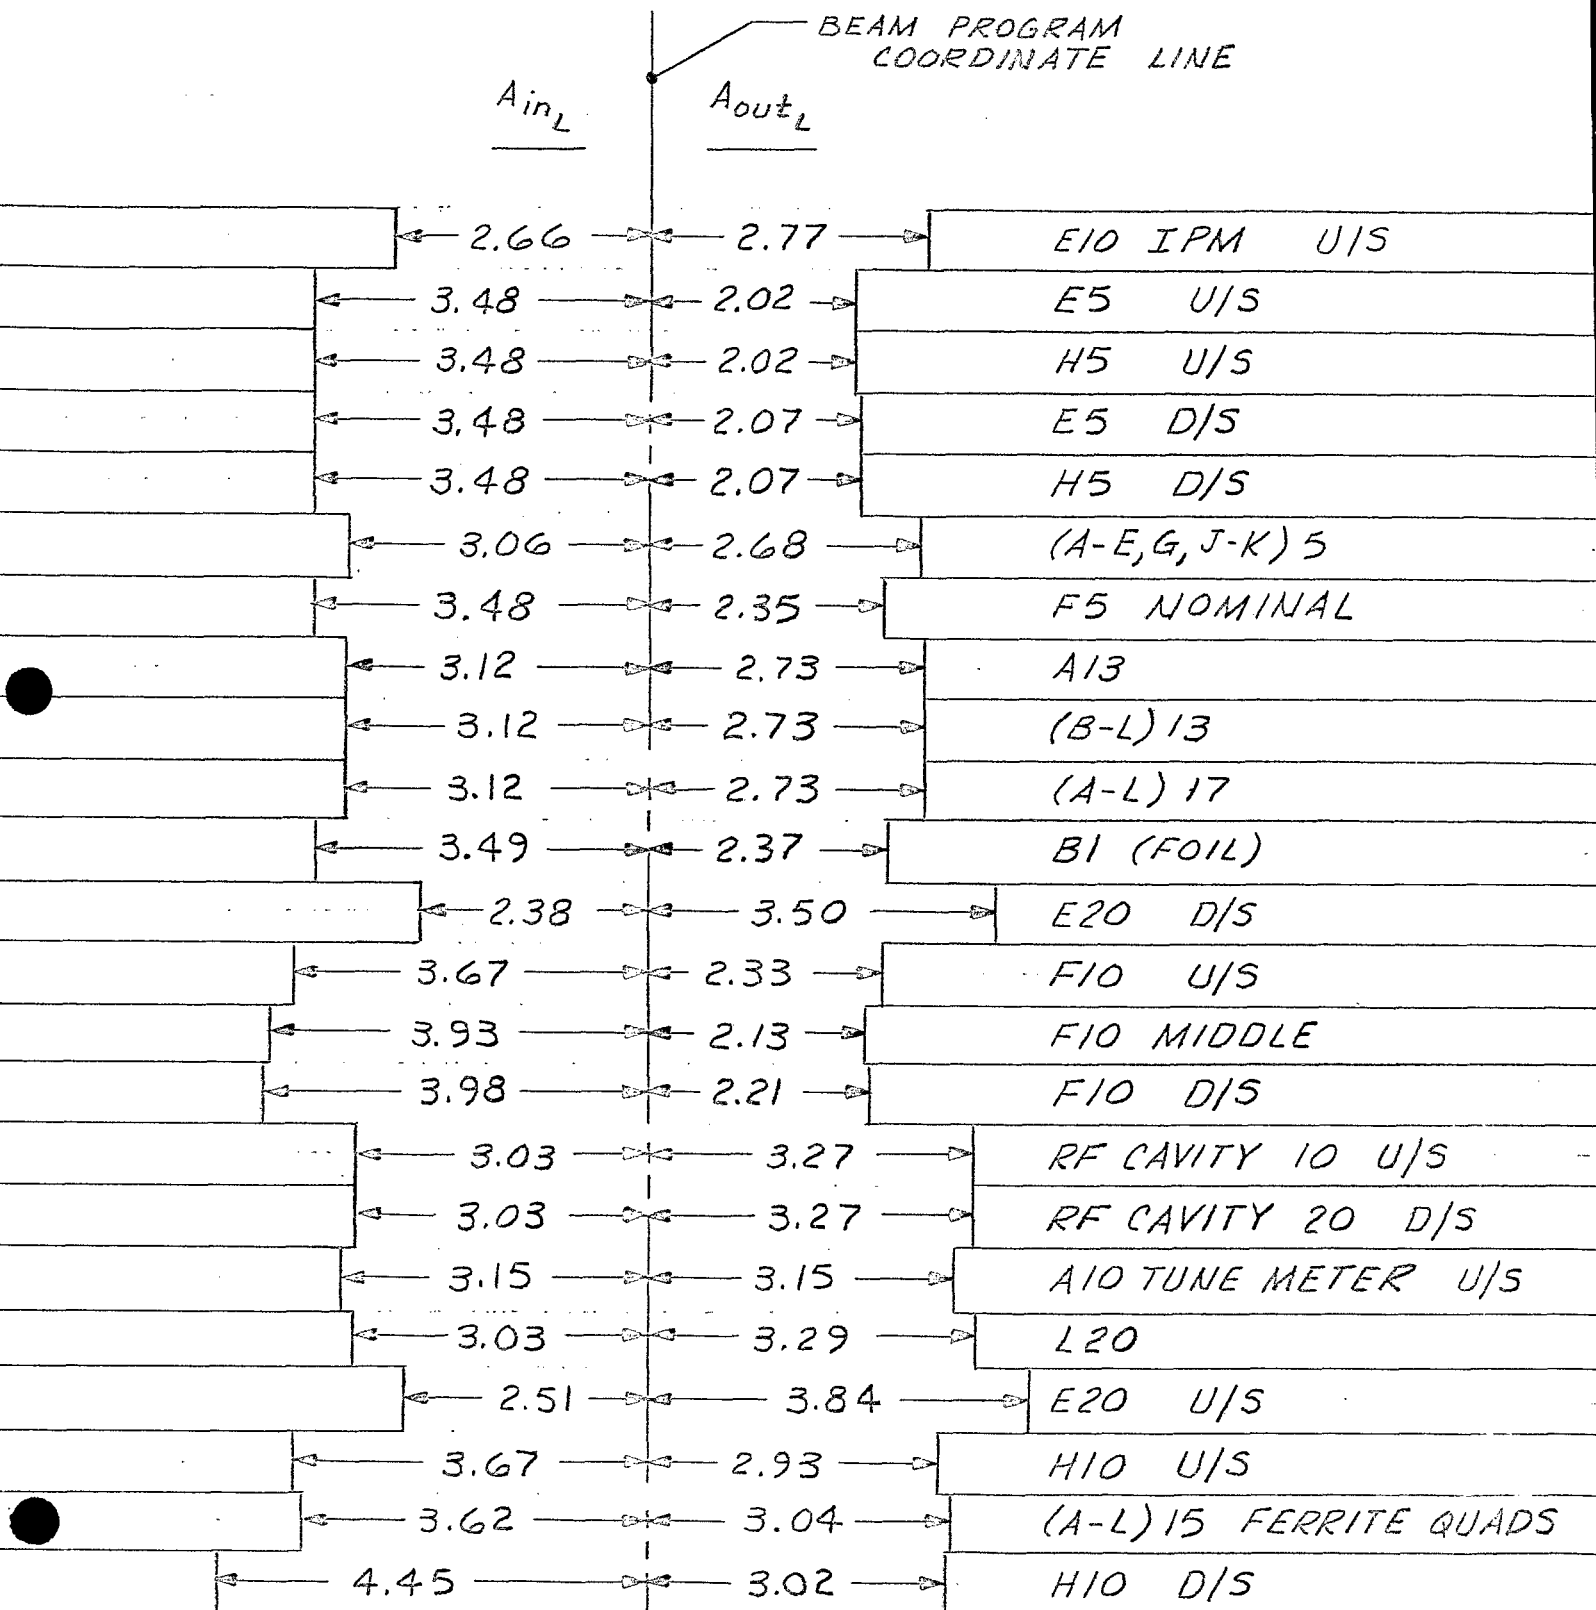 BEAM PROGRAM
COORDINATE LINE
AinL AoutL
2.66 2.77 E10 IPM U/S
3.48 2.02 E5 U/S
3.48 2.02 H5 U/S
3.48 2.07 E5 D/S
3.48 2.07 H5 D/S
3.06 2.68 (A-E,G,J-K)5
3.48 2.35 F5 NOMINAL
3.12 2.73 A13
3.12 2.73 (B-L)13
3.12 2.73 (A-L)17
3.49 2.37 B1 (FOIL)
2.38 3.50 E20 D/S
3.67 2.33 F10 U/S
3.93 2.13 F10 MIDDLE
3.98 2.21 F10 D/S
3.03 3.27 RF CAVITY 10 U/S
3.03 3.27 RF CAVITY 20 D/S
3.15 3.15 A10 TUNE METER U/S
3.03 3.29 L20
2.51 3.84 E20 U/S
3.67 2.93 H10 U/S
3.62 3.04 (A-L)15 FERRITE QUADS
4.45 3.02 H10 D/S